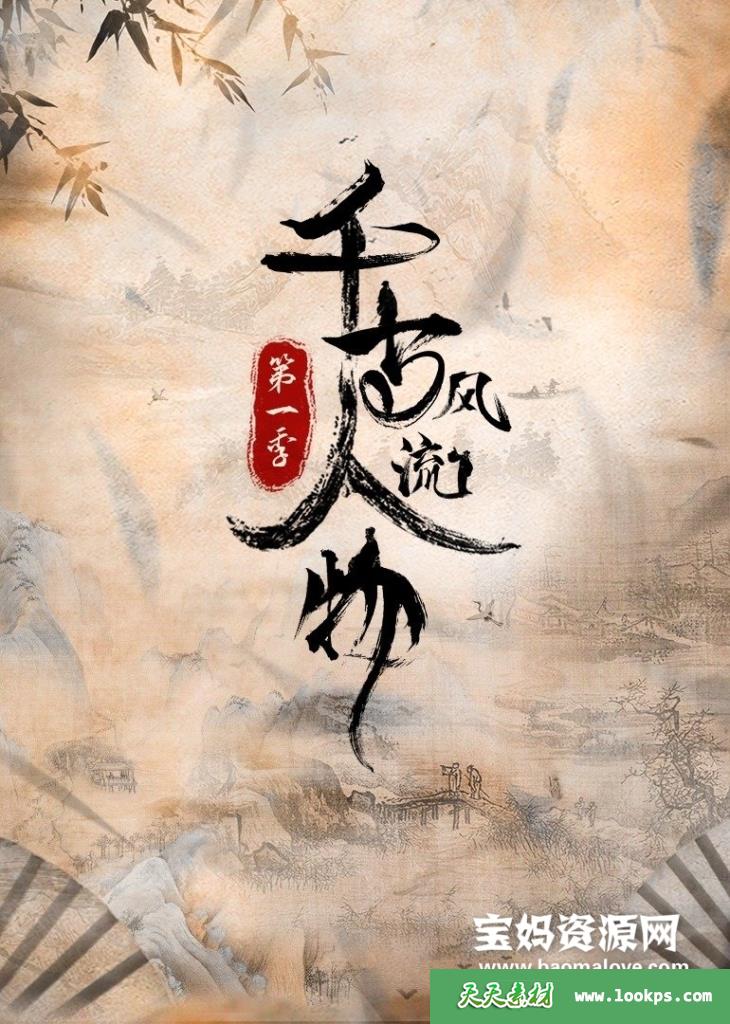 千古风流人物
第一季
宝妈资源网
www.baomalove.com
天天素材 www.lookps.com